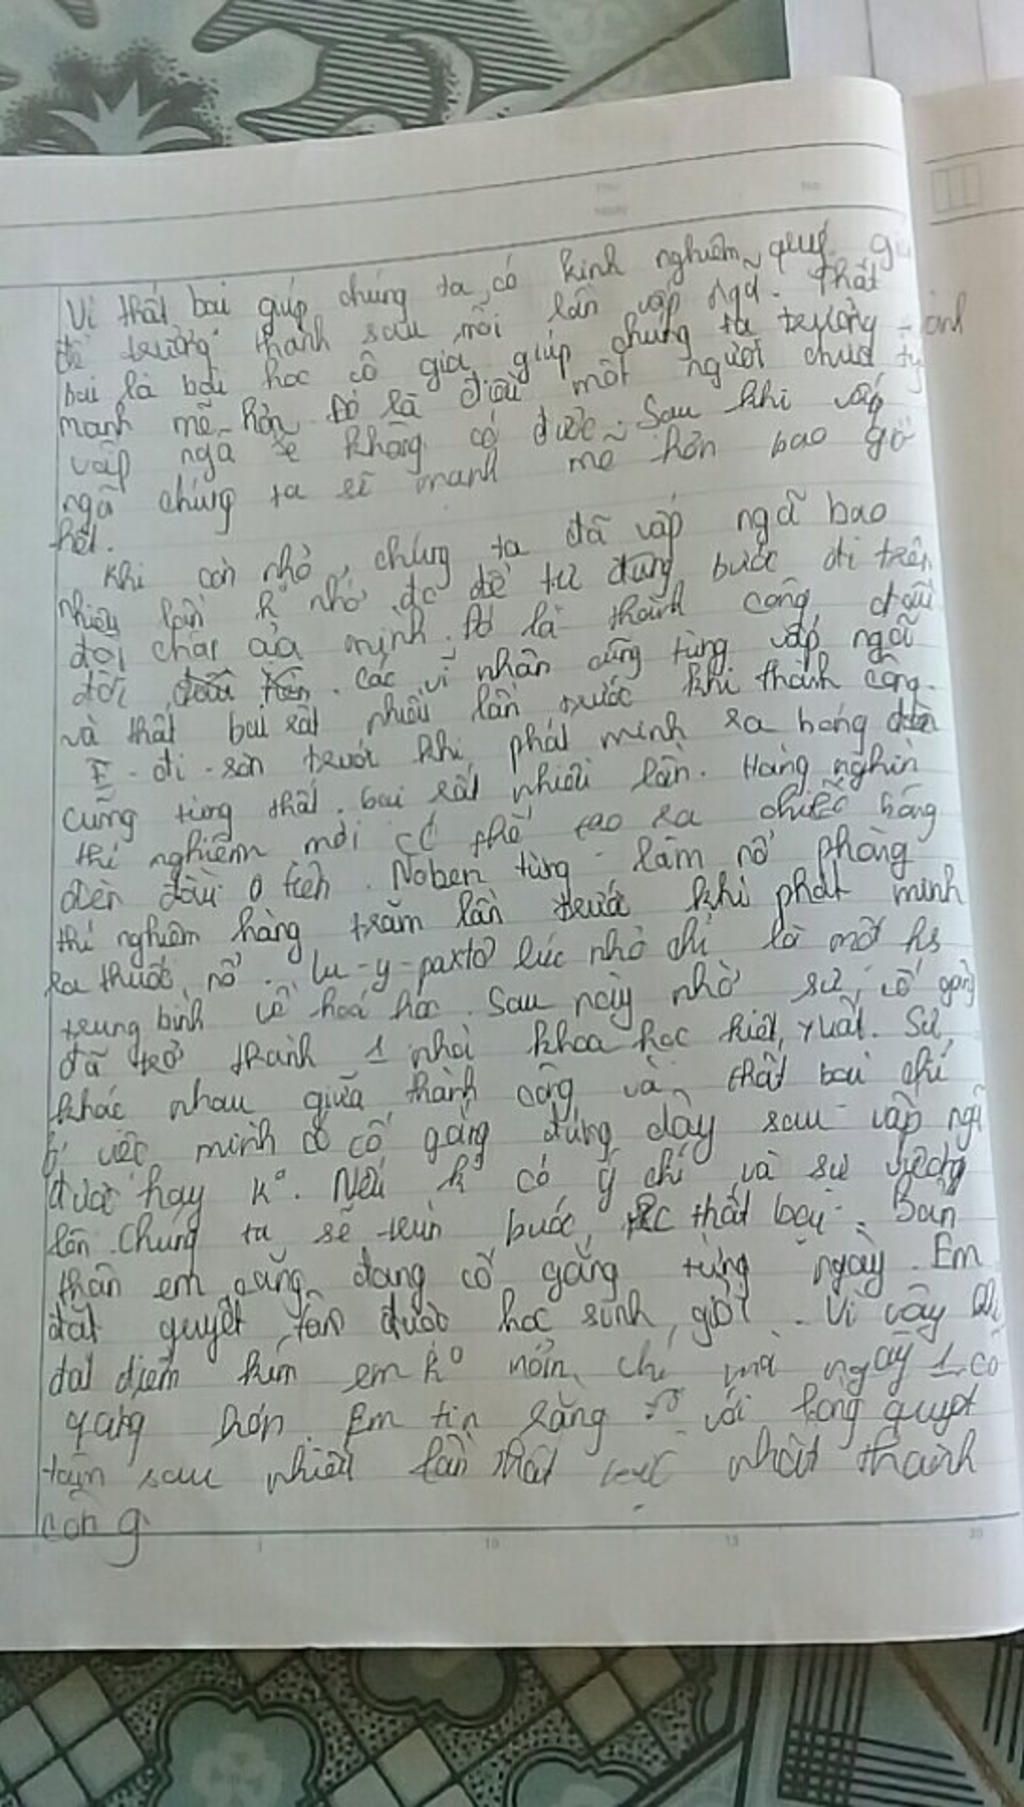 Vì thất bại giúp chúng ta có kinh nghiệm quý
để trưởng thành sau mỗi lần vấp ngã. Thất
bại là bài học vô giá, giúp chúng ta trưởng
mạnh mẽ hơn. Đó là điều một người chưa
vấp ngã sẽ không có được. Sau khi vấp
ngã chúng ta sẽ mạnh mẽ hơn bao giờ
hết.
Khi còn nhỏ, chúng ta đã vấp ngã bao
nhiêu lần k nhớ để tự đứng bước đi trên
đôi chân của mình. Đó là thành công đầu
đời. Các vĩ nhân cũng từng vấp ngã
và thất bại rất nhiều lần trước khi thành công.
Ê-đi-sơn trước khi phát minh ra bóng đèn
cũng từng thất bại rất nhiều lần. Hàng nghìn
thí nghiệm mới có thể tạo ra chiếc bóng
đèn đầu tiên. Noben từng làm nổ phòng
thí nghiệm hàng trăm lần trước khi phát minh
ra thuốc nổ. Lu-y-paxtơ lúc nhỏ chỉ là một hs
trung bình về hoá học. Sau này nhờ sự cố gắng
đã trở thành 1 nhà khoa học kiệt xuất. Sự
khác nhau giữa thành công và thất bại chỉ
ở việc mình có cố gắng đứng dậy sau vấp ngã
được hay k°. Nếu k° có ý chí và sự vươn
lên chúng ta sẽ bước thất bại. Bản
thân em cũng đang cố gắng từng ngày. Em
đặt quyết tâm được học sinh giỏi. Vì vậy khi
đạt điểm kém em k° nản chí mà ngày 1 cố
gắng hơn. Em tin rằng với lòng quyết
tâm sau nhiều lần thất thành
công.